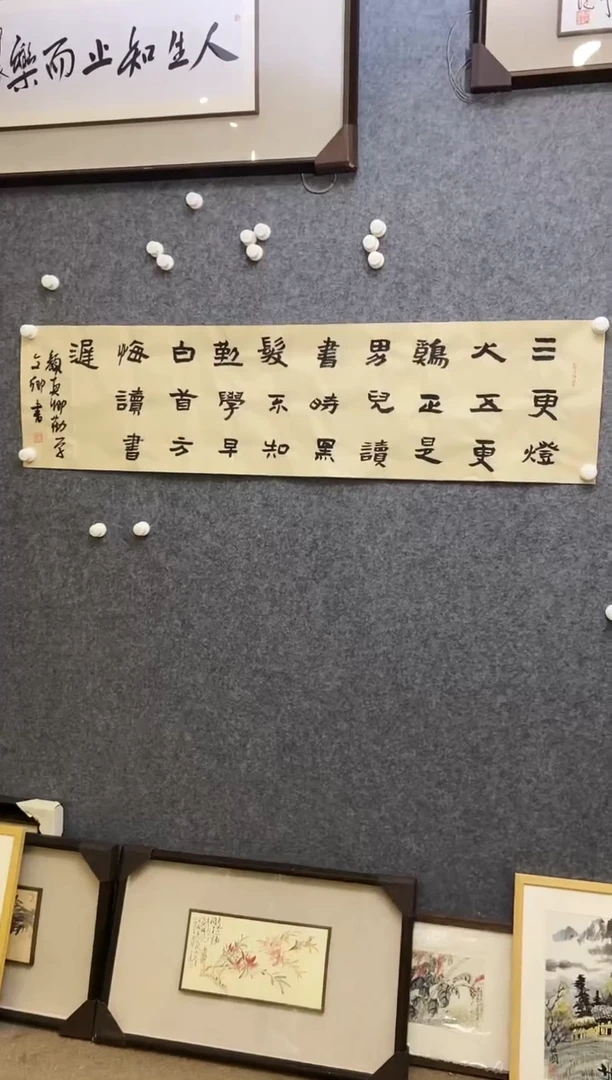 人生知止而樂
三更燈
火五更
鷄正是
男兒讀
書時黑
髮不知
勤學早
白首方
悔讀書
遲
顏真卿勸学
文卿書